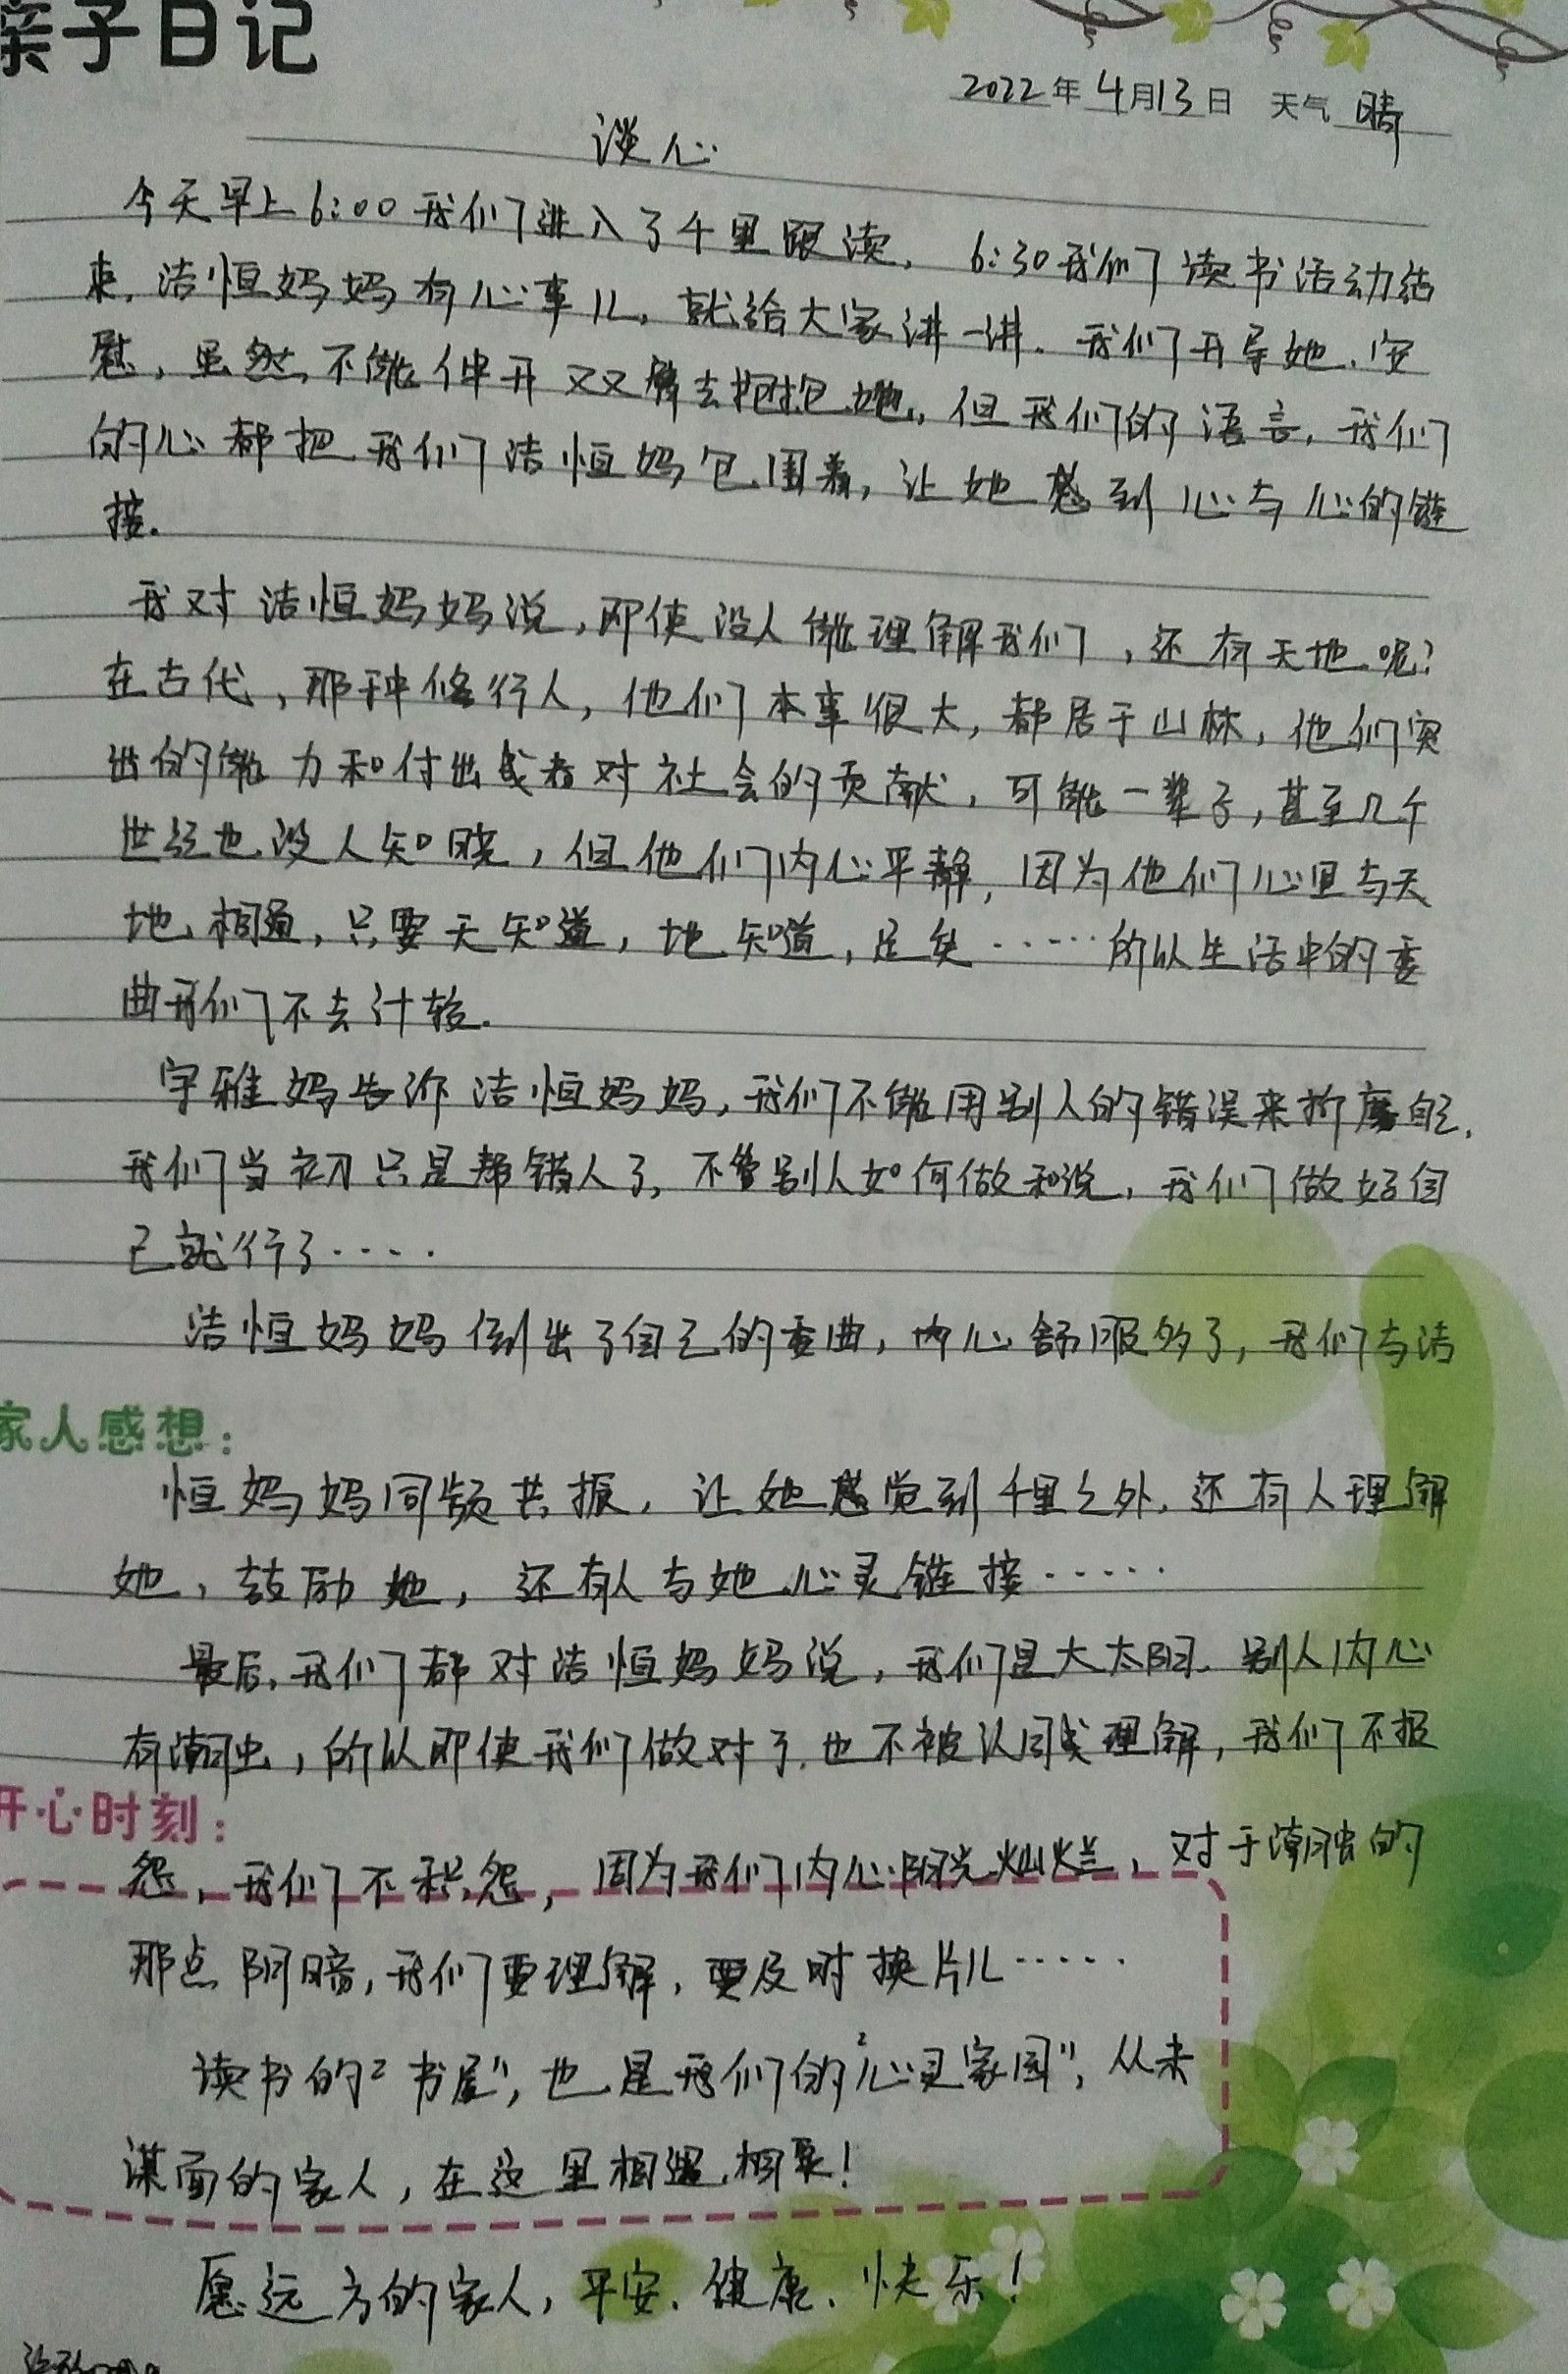 亲子日记
2022年4月13日 天气 晴
谈心
今天早上6:00我们进入了千里跟读，6:30我们读书活动结
束，洁恒妈妈有心事儿，就给大家讲一讲。我们开导她、安
慰，虽然不能伸开双臂去抱抱她，但我们的语言，我们
的心都把我们洁恒妈包围着，让她感到心与心的链
接。
我对洁恒妈妈说，即使没人能理解我们，还有天地呢？
在古代，那种修行人，他们本事很大，都居于山林，他们突
出的能力和付出或者对社会的贡献，可能一辈子，甚至几个
世纪也没人知晓，但他们内心平静，因为他们心里与天
地相通，只要天知道，地知道，足矣……所以生活中的委
曲我们不去计较。
宇雅妈告诉洁恒妈妈，我们不能用别人的错误来折磨自己，
我们当初只是帮错人了，不管别人如何做和说，我们做好自
己就行了……
洁恒妈妈倒出了自己的委曲，内心舒服多了，我们与洁
家人感想：
恒妈妈同频共振，让她感觉到千里之外，还有人理解
她，鼓励她，还有人与她心灵链接……
最后，我们都对洁恒妈妈说，我们是大太阳，别人内心
有潮虫，所以即使我们做对了，也不被认同或理解，我们不报
开心时刻：
怨，我们不积怨，因为我们内心阳光灿烂，对于潮虫的
那点阴暗，我们要理解，要及时换片儿……
读书的“书屋”，也是我们的“心灵家园”，从未
谋面的家人，在这里相遇，相聚！
愿远方的家人，平安、健康、快乐！